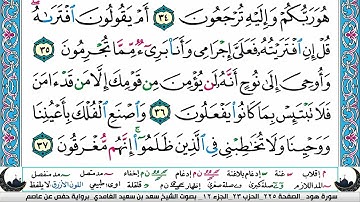 هُوَ رَبُّكُمْ وَإِلَيْهِ تُرْجَعُونَ ٣٤ أَمْ يَقُولُونَ ٱفْتَرَىٰهُ
قُلْ إِنِ ٱفْتَرَيْتُهُۥ فَعَلَىَّ إِجْرَامِى وَأَنَا۠ بَرِىٓءٌ مِّمَّا تُجْرِمُونَ ٣٥
وَأُوحِىَ إِلَىٰ نُوحٍ أَنَّهُۥ لَن يُؤْمِنَ مِن قَوْمِكَ إِلَّا مَن قَدْ ءَامَنَ
فَلَا تَبْتَئِسْ بِمَا كَانُوا۟ يَفْعَلُونَ ٣٦ وَٱصْنَعِ ٱلْفُلْكَ بِأَعْيُنِنَا
وَوَحْيِنَا وَلَا تُخَٰطِبْنِى فِى ٱلَّذِينَ ظَلَمُوٓا۟ إِنَّهُم مُّغْرَقُونَ ٣٧
سورة هود الصفحة ٢٢٥ الحزب ٢٣ الجزء ١٢ بصوت الشيخ سعد بن سعيد الغامدي برواية حفص عن عاصم